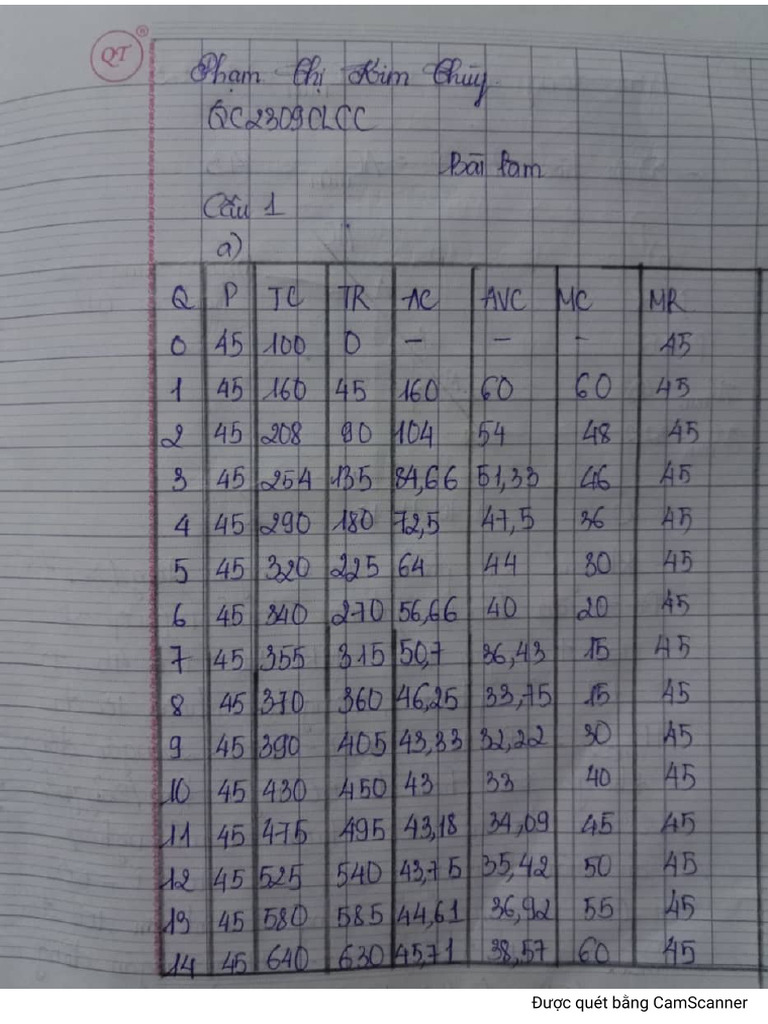 QT ®
Phạm Thị Kim Thùy
QC2309CLCC
Bài làm
Câu 1
a)
Q P TC TR AC AVC MC MR
0 45 100 0 - - - 45
1 45 160 45 160 60 60 45
2 45 208 90 104 54 48 45
3 45 254 135 84,66 51,33 46 45
4 45 290 180 72,5 47,5 36 45
5 45 320 225 64 44 30 45
6 45 340 270 56,66 40 20 45
7 45 355 315 50,7 36,43 15 45
8 45 370 360 46,25 33,75 15 45
9 45 390 405 43,33 32,22 30 45
10 45 430 450 43 33 40 45
11 45 475 495 43,18 34,09 45 45
12 45 525 540 43,75 35,42 50 45
13 45 580 585 44,61 36,92 55 45
14 45 640 630 45,71 38,57 60 45
Được quét bằng CamScanner